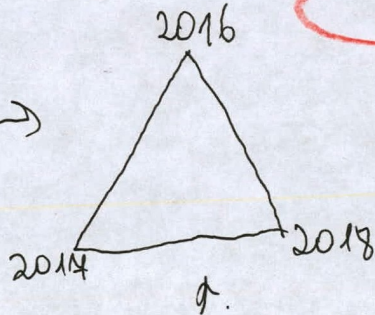 2016
2017 2018